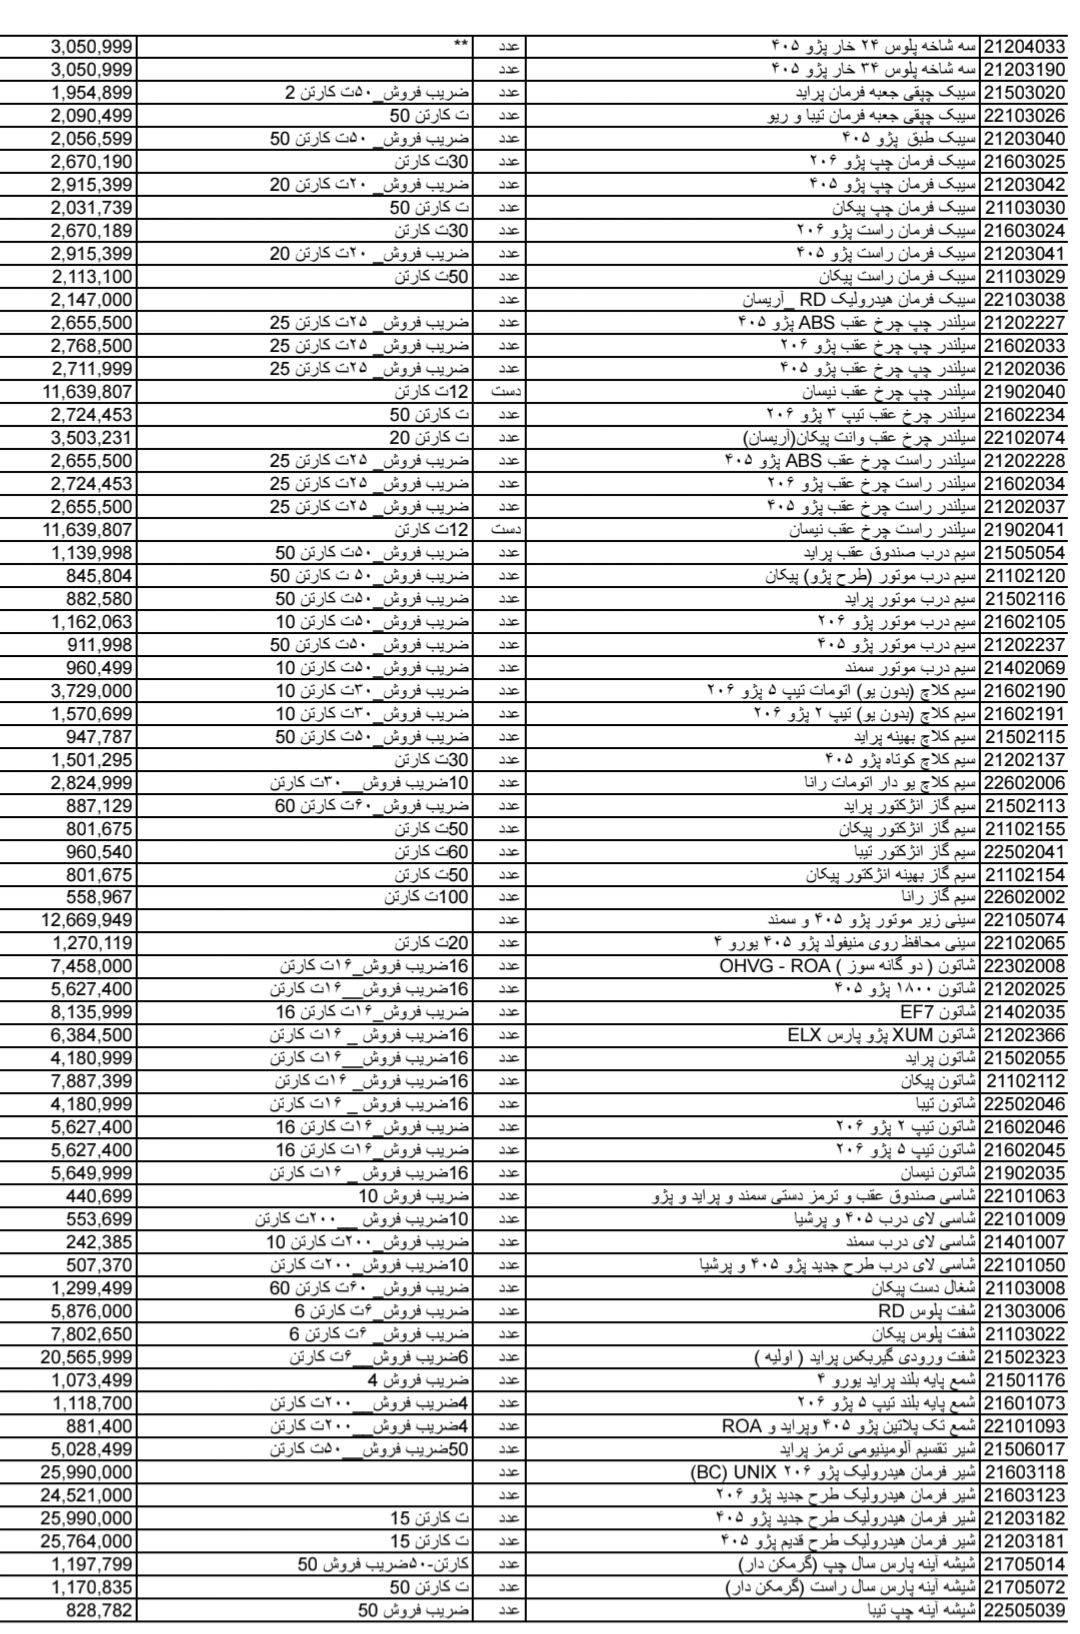 21204033 سه شاخه پلوس ۲۴ خار پژو ۴۰۵ عدد ** 3,050,999
21203190 سه شاخه پلوس ۳۴ خار پژو ۴۰۵ عدد 3,050,999
21503020 سیبک چپقی جعبه فرمان پراید عدد ضریب فروش_۵۰ت کارتن 2 1,954,899
22103026 سیبک چپقی جعبه فرمان تیبا و ریو عدد ت کارتن 50 2,090,499
21203040 سیبک طبق پژو ۴۰۵ عدد ضریب فروش_ ۵۰ت کارتن 50 2,056,599
21603025 سیبک فرمان چپ پژو ۲۰۶ عدد 30ت کارتن 2,670,190
21203042 سیبک فرمان چپ پژو ۴۰۵ عدد ضریب فروش_ ۲۰ت کارتن 20 2,915,399
21103030 سیبک فرمان چپ پیکان عدد ت کارتن 50 2,031,739
21603024 سیبک فرمان راست پژو ۲۰۶ عدد 30ت کارتن 2,670,189
21203041 سیبک فرمان راست پژو ۴۰۵ عدد ضریب فروش_ ۲۰ت کارتن 20 2,915,399
21103029 سیبک فرمان راست پیکان عدد 50ت کارتن 2,113,100
22103038 سیبک فرمان هیدرولیک RD _آریسان عدد 2,147,000
21202227 سیلندر چپ چرخ عقب ABS پژو ۴۰۵ عدد ضریب فروش_ ۲۵ت کارتن 25 2,655,500
21602033 سیلندر چپ چرخ عقب پژو ۲۰۶ عدد ضریب فروش_ ۲۵ت کارتن 25 2,768,500
21202036 سیلندر چپ چرخ عقب پژو ۴۰۵ عدد ضریب فروش_ ۲۵ت کارتن 25 2,711,999
21902040 سیلندر چپ چرخ عقب نیسان دست 12ت کارتن 11,639,807
21602234 سیلندر چرخ عقب تیپ ۳ پژو ۲۰۶ عدد ت کارتن 50 2,724,453
22102074 سیلندر چرخ عقب وانت پیکان(آریسان) عدد ت کارتن 20 3,503,231
21202228 سیلندر راست چرخ عقب ABS پژو ۴۰۵ عدد ضریب فروش_ ۲۵ت کارتن 25 2,655,500
21602034 سیلندر راست چرخ عقب پژو ۲۰۶ عدد ضریب فروش_ ۲۵ت کارتن 25 2,724,453
21202037 سیلندر راست چرخ عقب پژو ۴۰۵ عدد ضریب فروش_ ۲۵ت کارتن 25 2,655,500
21902041 سیلندر راست چرخ عقب نیسان دست 12ت کارتن 11,639,807
21505054 سیم درب صندوق عقب پراید عدد ضریب فروش_۵۰ت کارتن 50 1,139,998
21102120 سیم درب موتور (طرح پژو) پیکان عدد ضریب فروش_۵۰ ت کارتن 50 845,804
21502116 سیم درب موتور پراید عدد ضریب فروش_۵۰ت کارتن 50 882,580
21602105 سیم درب موتور پژو ۲۰۶ عدد ضریب فروش_۵۰ت کارتن 10 1,162,063
21202237 سیم درب موتور پژو ۴۰۵ عدد ضریب فروش_۵۰ت کارتن 50 911,998
21402069 سیم درب موتور سمند عدد ضریب فروش_۵۰ت کارتن 10 960,499
21602190 سیم کلاچ (بدون یو) اتومات تیپ ۵ پژو ۲۰۶ عدد ضریب فروش_۳۰ت کارتن 10 3,729,000
21602191 سیم کلاچ (بدون یو) تیپ ۲ پژو ۲۰۶ عدد ضریب فروش_۳۰ت کارتن 10 1,570,699
21502115 سیم کلاچ بهینه پراید عدد ضریب فروش_۵۰ت کارتن 50 947,787
21202137 سیم کلاچ کوتاه پژو ۴۰۵ عدد 30ت کارتن 1,501,295
22602006 سیم کلاچ یو دار اتومات رانا عدد 10ضریب فروش__۳۰ت کارتن 2,824,999
21502113 سیم گاز انژکتور پراید عدد ضریب فروش_۶۰ت کارتن 60 887,129
21102155 سیم گاز انژکتور پیکان عدد 50ت کارتن 801,675
22502041 سیم گاز انژکتور تیبا عدد 60ت کارتن 960,540
21102154 سیم گاز بهینه انژکتور پیکان عدد 50ت کارتن 801,675
22602002 سیم گاز رانا عدد 100ت کارتن 558,967
22105074 سینی زیر موتور پژو ۴۰۵ و سمند عدد 12,669,949
22102065 سینی محافظ روی منیفولد پژو ۴۰۵ یورو ۴ عدد 20ت کارتن 1,270,119
22302008 شاتون ( دو گانه سوز ) OHVG - ROA عدد 16ضریب فروش_۱۶ت کارتن 7,458,000
21202025 شاتون ۱۸۰۰ پژو ۴۰۵ عدد 16ضریب فروش__۱۶ت کارتن 5,627,400
21402035 شاتون EF7 عدد ضریب فروش_۱۶ت کارتن 16 8,135,999
21202366 شاتون XUM پژو پارس ELX عدد 16ضریب فروش_ _۱۶ت کارتن 6,384,500
21502055 شاتون پراید عدد 16ضریب فروش__۱۶ت کارتن 4,180,999
21102112 شاتون پیکان عدد 16ضریب فروش_ ۱۶ت کارتن 7,887,399
22502046 شاتون تیبا عدد 16ضریب فروش _ ۱۶ت کارتن 4,180,999
21602046 شاتون تیپ ۲ پژو ۲۰۶ عدد ضریب فروش_۱۶ت کارتن 16 5,627,400
21602045 شاتون تیپ ۵ پژو ۲۰۶ عدد ضریب فروش_۱۶ت کارتن 16 5,627,400
21902035 شاتون نیسان عدد 16ضریب فروش _ ۱۶ت کارتن 5,649,999
22101063 شاسی صندوق عقب و ترمز دستی سمند و پراید و پژو عدد ضریب فروش 10 440,699
22101009 شاسی لای درب ۴۰۵ و پرشیا عدد 10ضریب فروش __۲۰۰ت کارتن 553,699
21401007 شاسی لای درب سمند عدد ضریب فروش_۲۰۰ت کارتن 10 242,385
22101050 شاسی لای درب طرح جدید پژو ۴۰۵ و پرشیا عدد 10ضریب فروش_۲۰۰ت کارتن 507,370
21103008 شغال دست پیکان عدد ضریب فروش_ ۶۰ت کارتن 60 1,299,499
21303006 شفت پلوس RD عدد ضریب فروش_۶ت کارتن 6 5,876,000
21103022 شفت پلوس پیکان عدد ضریب فروش_ ۶ت کارتن 6 7,802,650
21502323 شفت ورودی گیربکس پراید ( اولیه ) عدد 6ضریب فروش__۶ت کارتن 20,565,999
21501176 شمع پایه بلند پراید یورو ۴ عدد ضریب فروش 4 1,073,499
21601073 شمع پایه بلند تیپ ۵ پژو ۲۰۶ عدد 4ضریب فروش__۲۰۰ت کارتن 1,118,700
22101093 شمع تک پلاتین پژو ۴۰۵ وپراید و ROA عدد 4ضریب فروش__۲۰۰ت کارتن 881,400
21506017 شیر تقسیم آلومینیومی ترمز پراید عدد 50ضریب فروش__۵۰ت کارتن 5,028,499
21603118 شیر فرمان هیدرولیک پژو ۲۰۶ UNIX (BC) عدد 25,990,000
21603123 شیر فرمان هیدرولیک طرح جدید پژو ۲۰۶ عدد 24,521,000
21203182 شیر فرمان هیدرولیک طرح جدید پژو ۴۰۵ عدد ت کارتن 15 25,990,000
21203181 شیر فرمان هیدرولیک طرح قدیم پژو ۴۰۵ عدد ت کارتن 15 25,764,000
21705014 شیشه آینه پارس سال چپ (گرمکن دار) عدد کارتن-۵۰ضریب فروش 50 1,197,799
21705072 شیشه آینه پارس سال راست (گرمکن دار) عدد ت کارتن 50 1,170,835
22505039 شیشه آینه چپ تیبا عدد ضریب فروش 50 828,782